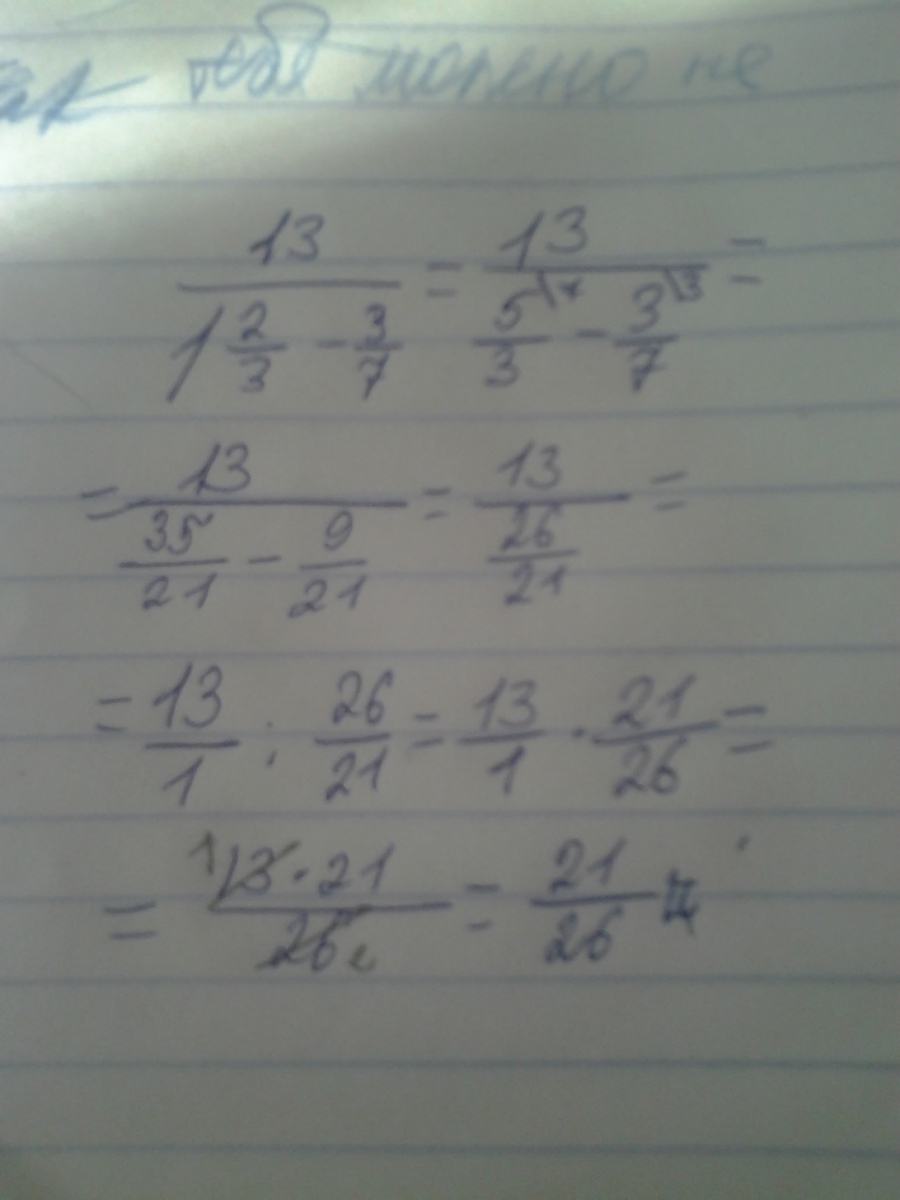 тебя можно не
13/(1 2/3 - 3/7) = 13/(5\7/3 - 3\3/7) =
= 13/(35/21 - 9/21) = 13/(26/21) =
= 13/1 : 26/21 = 13/1 · 21/26 =
= 1 13 · 21/26 2 = 21/26